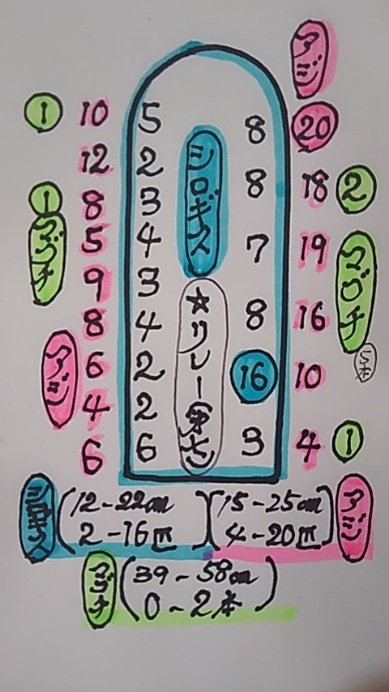 アジ
① 10 5 8 ⑳
12 2 シロギス 8 18 ②
① 8 3
マゴチ 5 4 7 19 マゴチ
9 3 ☆リレー
8 4 8 16 5本
アジ 6 2 ⑯ 10
4 2
6 6 3 4 ①
シロギス (12-22cm 2-16匹) (15-25cm 4-20匹) アジ
マゴチ (39-58cm 0-2本)